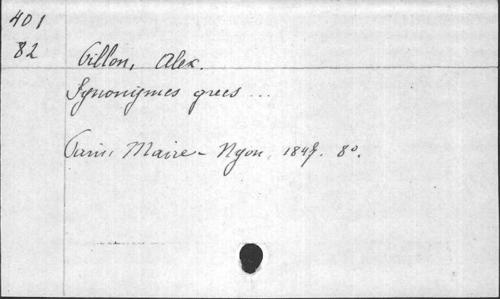 401
82
Pillon, Alex.
Synonymes grecs ...
Paris, Maire-Nyon, 1847. 8°.